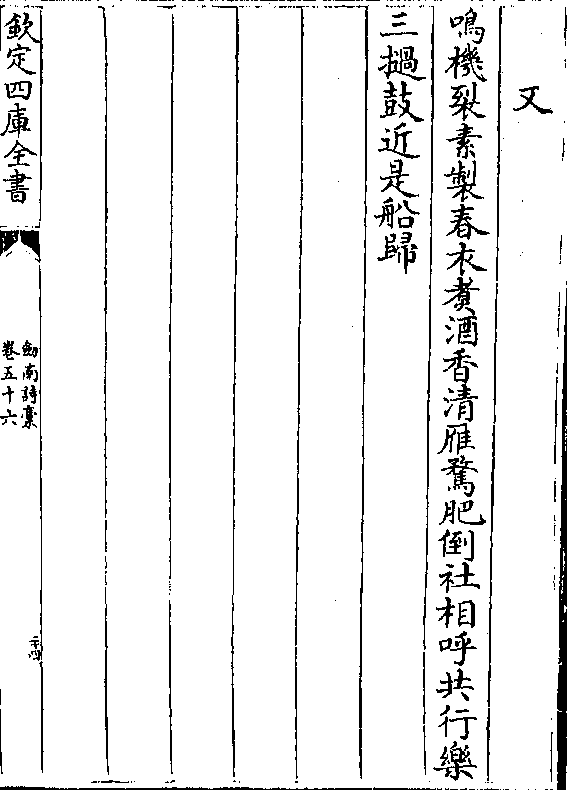 又
鳴機裂素製春衣煑酒香清雁鶩肥倒社相呼共行樂
三撾鼓近是船歸
欽定四庫全書
劒南詩藁
卷五十六
二十四